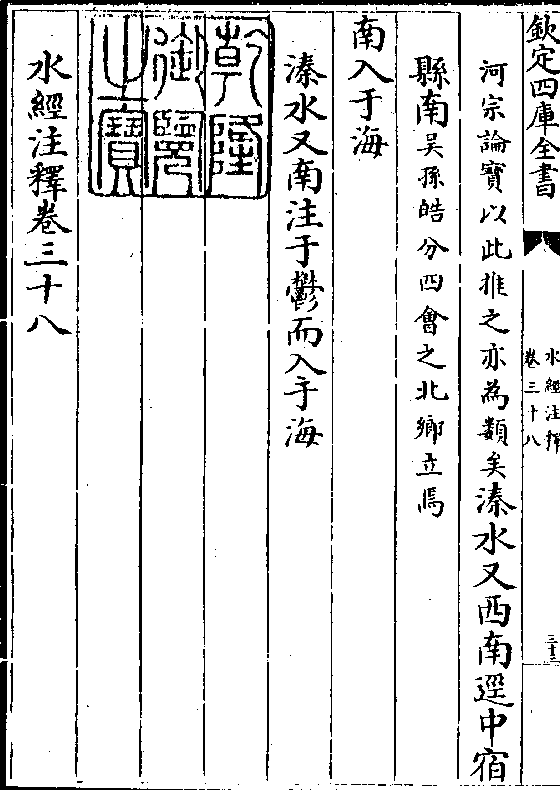 欽定四庫全書
水經注釋
卷三十八
三十三
河宗論寶以此推之亦為類矣溱水又西南逕中宿
縣南吳孫皓分四會之北鄉立焉
南入于海
溱水又南注于鬱而入于海
乾隆御覽之寶
水經注釋卷三十八